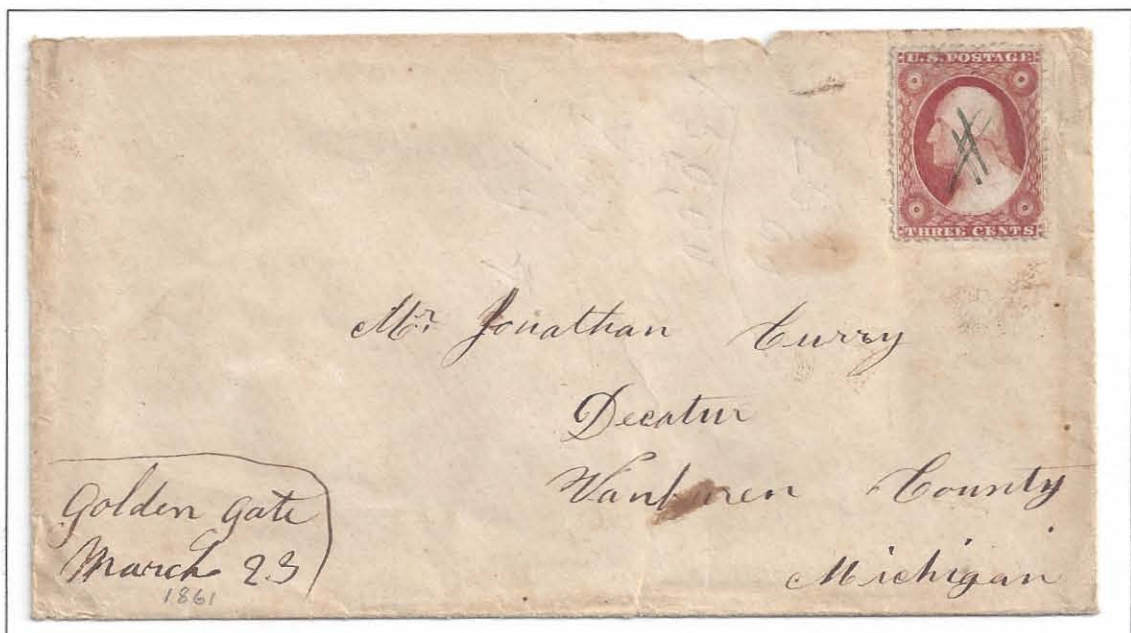 U.S. POSTAGE
THREE CENTS
Mr. Jonathan Curry
Decatur
Vanburen County
Michigan
Golden Gate
March 23
1861